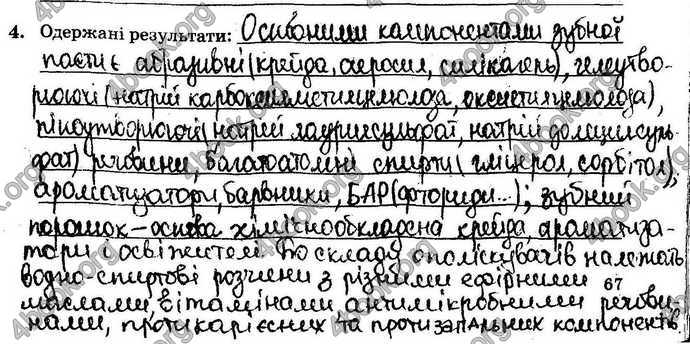 4. Одержані результати: Основними компонентами зубної
пасти є абразивні (крейда, аеросил, силікагель), гелеутво-
рюючі (натрій карбоксиметилцелюлоза, оксиетилцелюлоза),
піноутворюючі (натрій лаурилсульфат, натрій додецилсуль-
фат) речовини, багатоатомні спирти (гліцерол, сорбітол),
ароматизатори, барвники, БАР (фториди...); зубний
порошок – основа хімічнообкладена крейда, ароматиза-
тори і освіжителі. До складу ополіскувачів належать
водно-спиртові розчини з різними ефірними 67
маслами, вітамінами, антимікробними речови-
нами, протикарієсних та протизапальних компонентів.